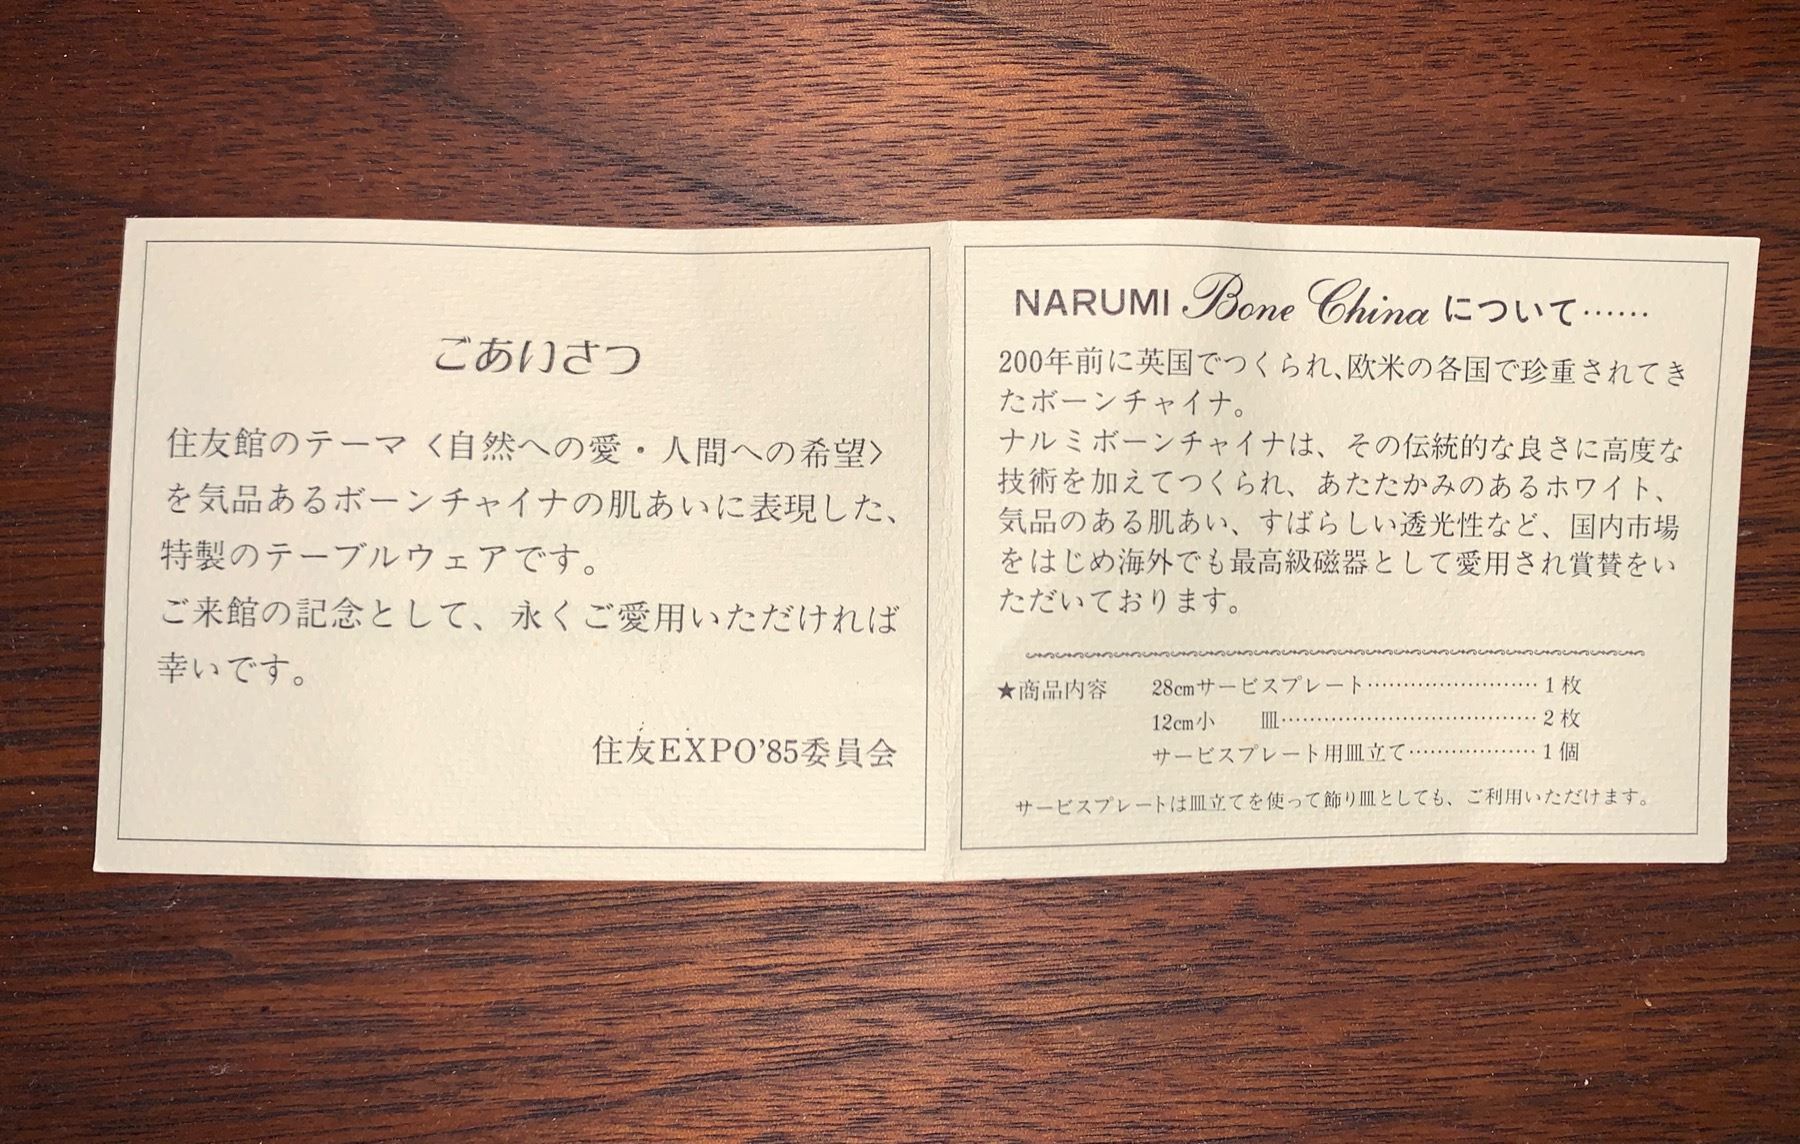 ごあいさつ
住友館のテーマ〈自然への愛・人間への希望〉
を気品あるボーンチャイナの肌あいに表現した、
特製のテーブルウェアです。
ご来館の記念として、永くご愛用いただければ
幸いです。
住友EXPO'85委員会
NARUMI Bone China について……
200年前に英国でつくられ、欧米の各国で珍重されてき
たボーンチャイナ。
ナルミボーンチャイナは、その伝統的な良さに高度な
技術を加えてつくられ、あたたかみのあるホワイト、
気品のある肌あい、すばらしい透光性など、国内市場
をはじめ海外でも最高級磁器として愛用され賞賛をい
ただいております。
★商品内容 28cmサービスプレート……………………1枚
12cm小 皿………………………………2枚
サービスプレート用皿立て………………1個
サービスプレートは皿立てを使って飾り皿としても、ご利用いただけます。